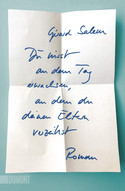 Guard Salem
Du wirst
an dem Tag
erwachsen,
an dem du
deinen Eltern
verzeihst
Roman